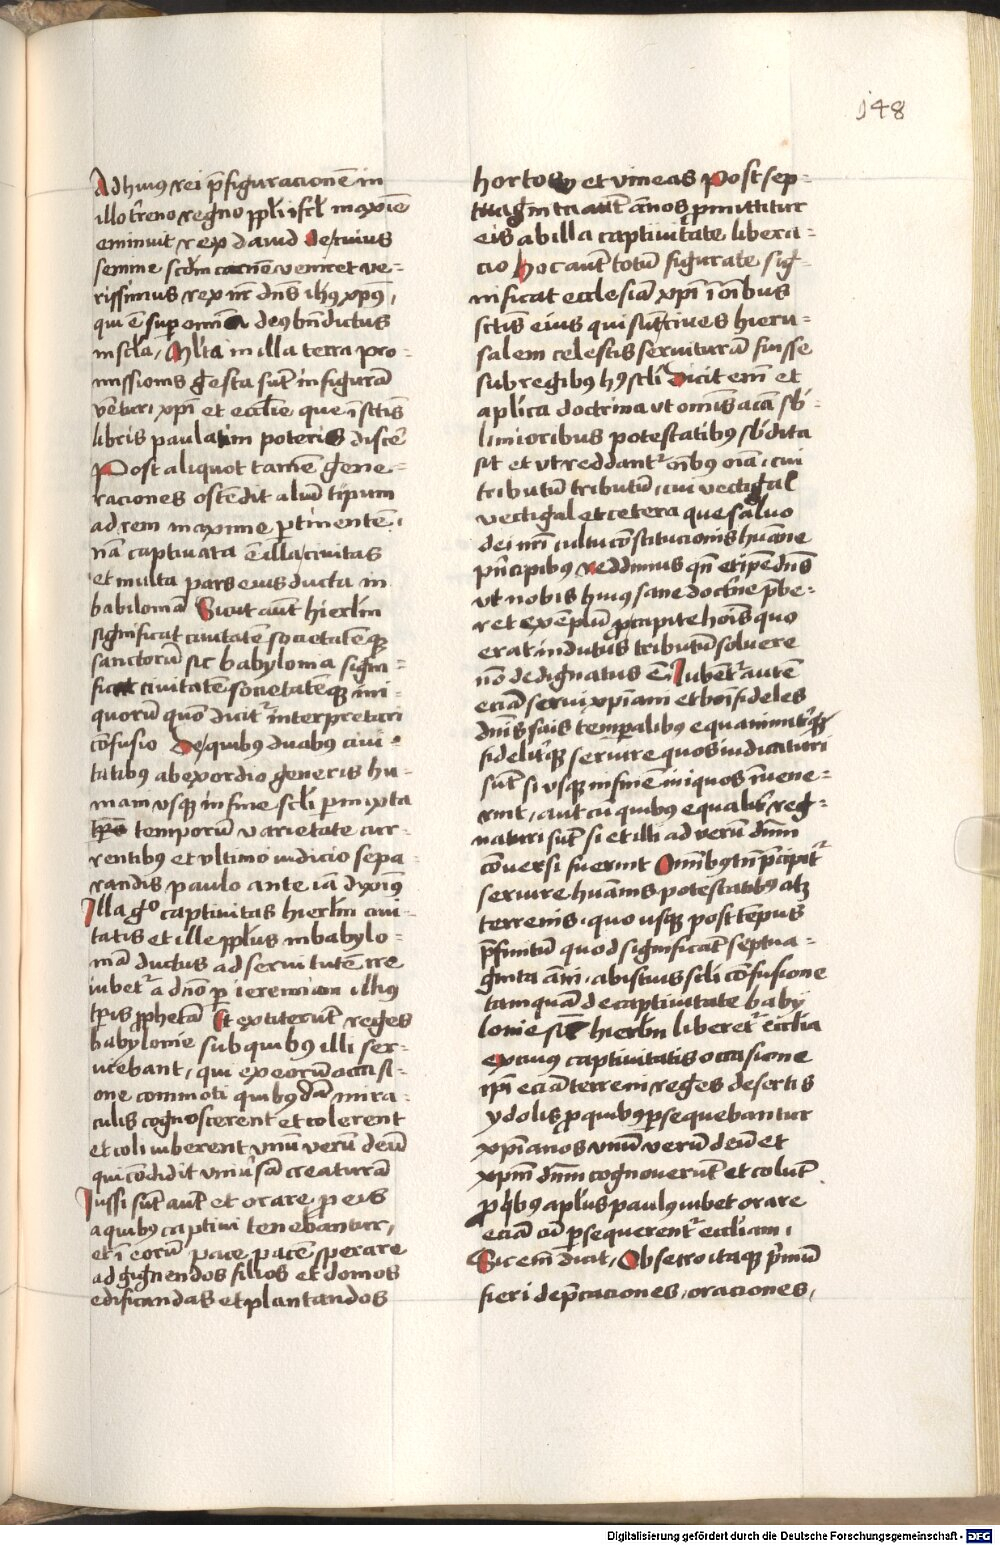 148
Ad huius rei p̄figuracionē in
illo t̄reno regno pp̄li isrl̄ maxīe
eminuit rex dauid De cuius
semine scdm̄ carnē veniret ve-
rissimus rex nr̄ dn̄s ih̄us xp̄us,
qui ē sup omīa deus bn̄dictus
in scl̄a, Ml̄ta in illa terra pro-
missionis gesta sūt in figurā
vēturi xp̄i et eccl̄ie que ī sc̄tis
libris paulatim poteris discē
Post aliquot tamē gene-
raciones ostēdit aliud tipum
ad rem maxime ptinentē.
nā captiuata ē illa ciuitas
et multa pars eius ducta in
babilomā Sicut aut̄ hierl̄m
significat ciuitatē societatēq̄
sanctorū sic babylonia signi-
ficat ciuitatē societatēq̄ ini-
quorū quō dicit᷑ interpretari
cōfusio De quibus duabus ciui-
tatibus ab exordio generis hu-
mani vsq̄ in fine scl̄i pmixta
temporū varietate cur-
rentibus et vltimo iudicio sepa
randis paulo ante iā diximus
Illa g° captiuitas hierl̄m ciui-
tatis et ille ppl̄us in babylo-
niā ductus ad seruitutē ire
iubet᷑ a dn̄o p ieremiam illius
tp̄ris pphetā Et extiterūt reges
babylonie sub quibus illi ser-
uiebant, qui ex eorū occasi-
one commoti quibusdā mira-
culis cognoscerent et colerent
et coli iuberent vnū verū deū
qui cōdidit vniūsā creaturā
Iussi sūt aut̄ et orare p eis
a quibus captiui tenebantur,
et ī eorū pace pacē sperare
ad gignendos filios et domos
edificandas et plantandos
hortos et vineas Post sep-
tuaginta aut̄ ānos pmittitur
eis ab illa captiuitate libera-
cio Hoc aut̄ totū figurate sig-
nificat ecclesiā xp̄i ī oībus
sc̄tis eius qui sūt ciues hieru-
salem celestis seruiturā fuisse
sub regibus hus scl̄i Dicit em̄ et
apl̄ica doctrina vt omīs aīa sb̄-
limioribus potestatibus sb̄dita
sit et vt reddant᷑ oībus oīa, cui
tributū tributū, cui vectigal
vectigal et cetera que saluo
dei nr̄i cultu cōstitucionis hūane
pn̄cipibus reddimus qn̄ et ip̄e dn̄s
vt nobis huius sane doctr̄ne p̄be-
ret exēplū p capite hoīs quo
erat indutus tributū soluere
nō dedignatus ē Iubent᷑ autē
eciā serui xp̄iani et boni fideles
dn̄is suis temporalibus equanimit̄q̄
fidelit̄q̄ seruire quos iudicaturi
sūt si vsq̄ in finē iniquos īuene-
rint, aut cū quibus equalit̄ reg-
naturi sūt si et illi ad verū dn̄m
cōuersi fuerint Omībus tn̄ p̄cipit᷑
seruire huānis potestatibus atq̄
terrenis. quo vsq̄ post tēpus
p̄finitū quod significāt septua-
ginta āni, ab istius scl̄i cōfusione
tamquā de captiuitate baby
lonie sic̄ hierl̄m liberet᷑ ecclīa
ex cuius captiuitatis occasione
ip̄i eciā terreni reges desertis
ydolis p quibus psequebantur
xp̄ianos vnū verū deū et
xpm̄ dn̄m cognouerūt et colūt
p qbus aplūs paulus iubet orare
eciā cū psequerent᷑ eccl̄iam,
Sic em̄ dicit, Obsecro itaq̄ p̄mū
fieri dep̄caciones, oraciones,
Digitalisierung gefördert durch die Deutsche Forschungsgemeinschaft - DFG